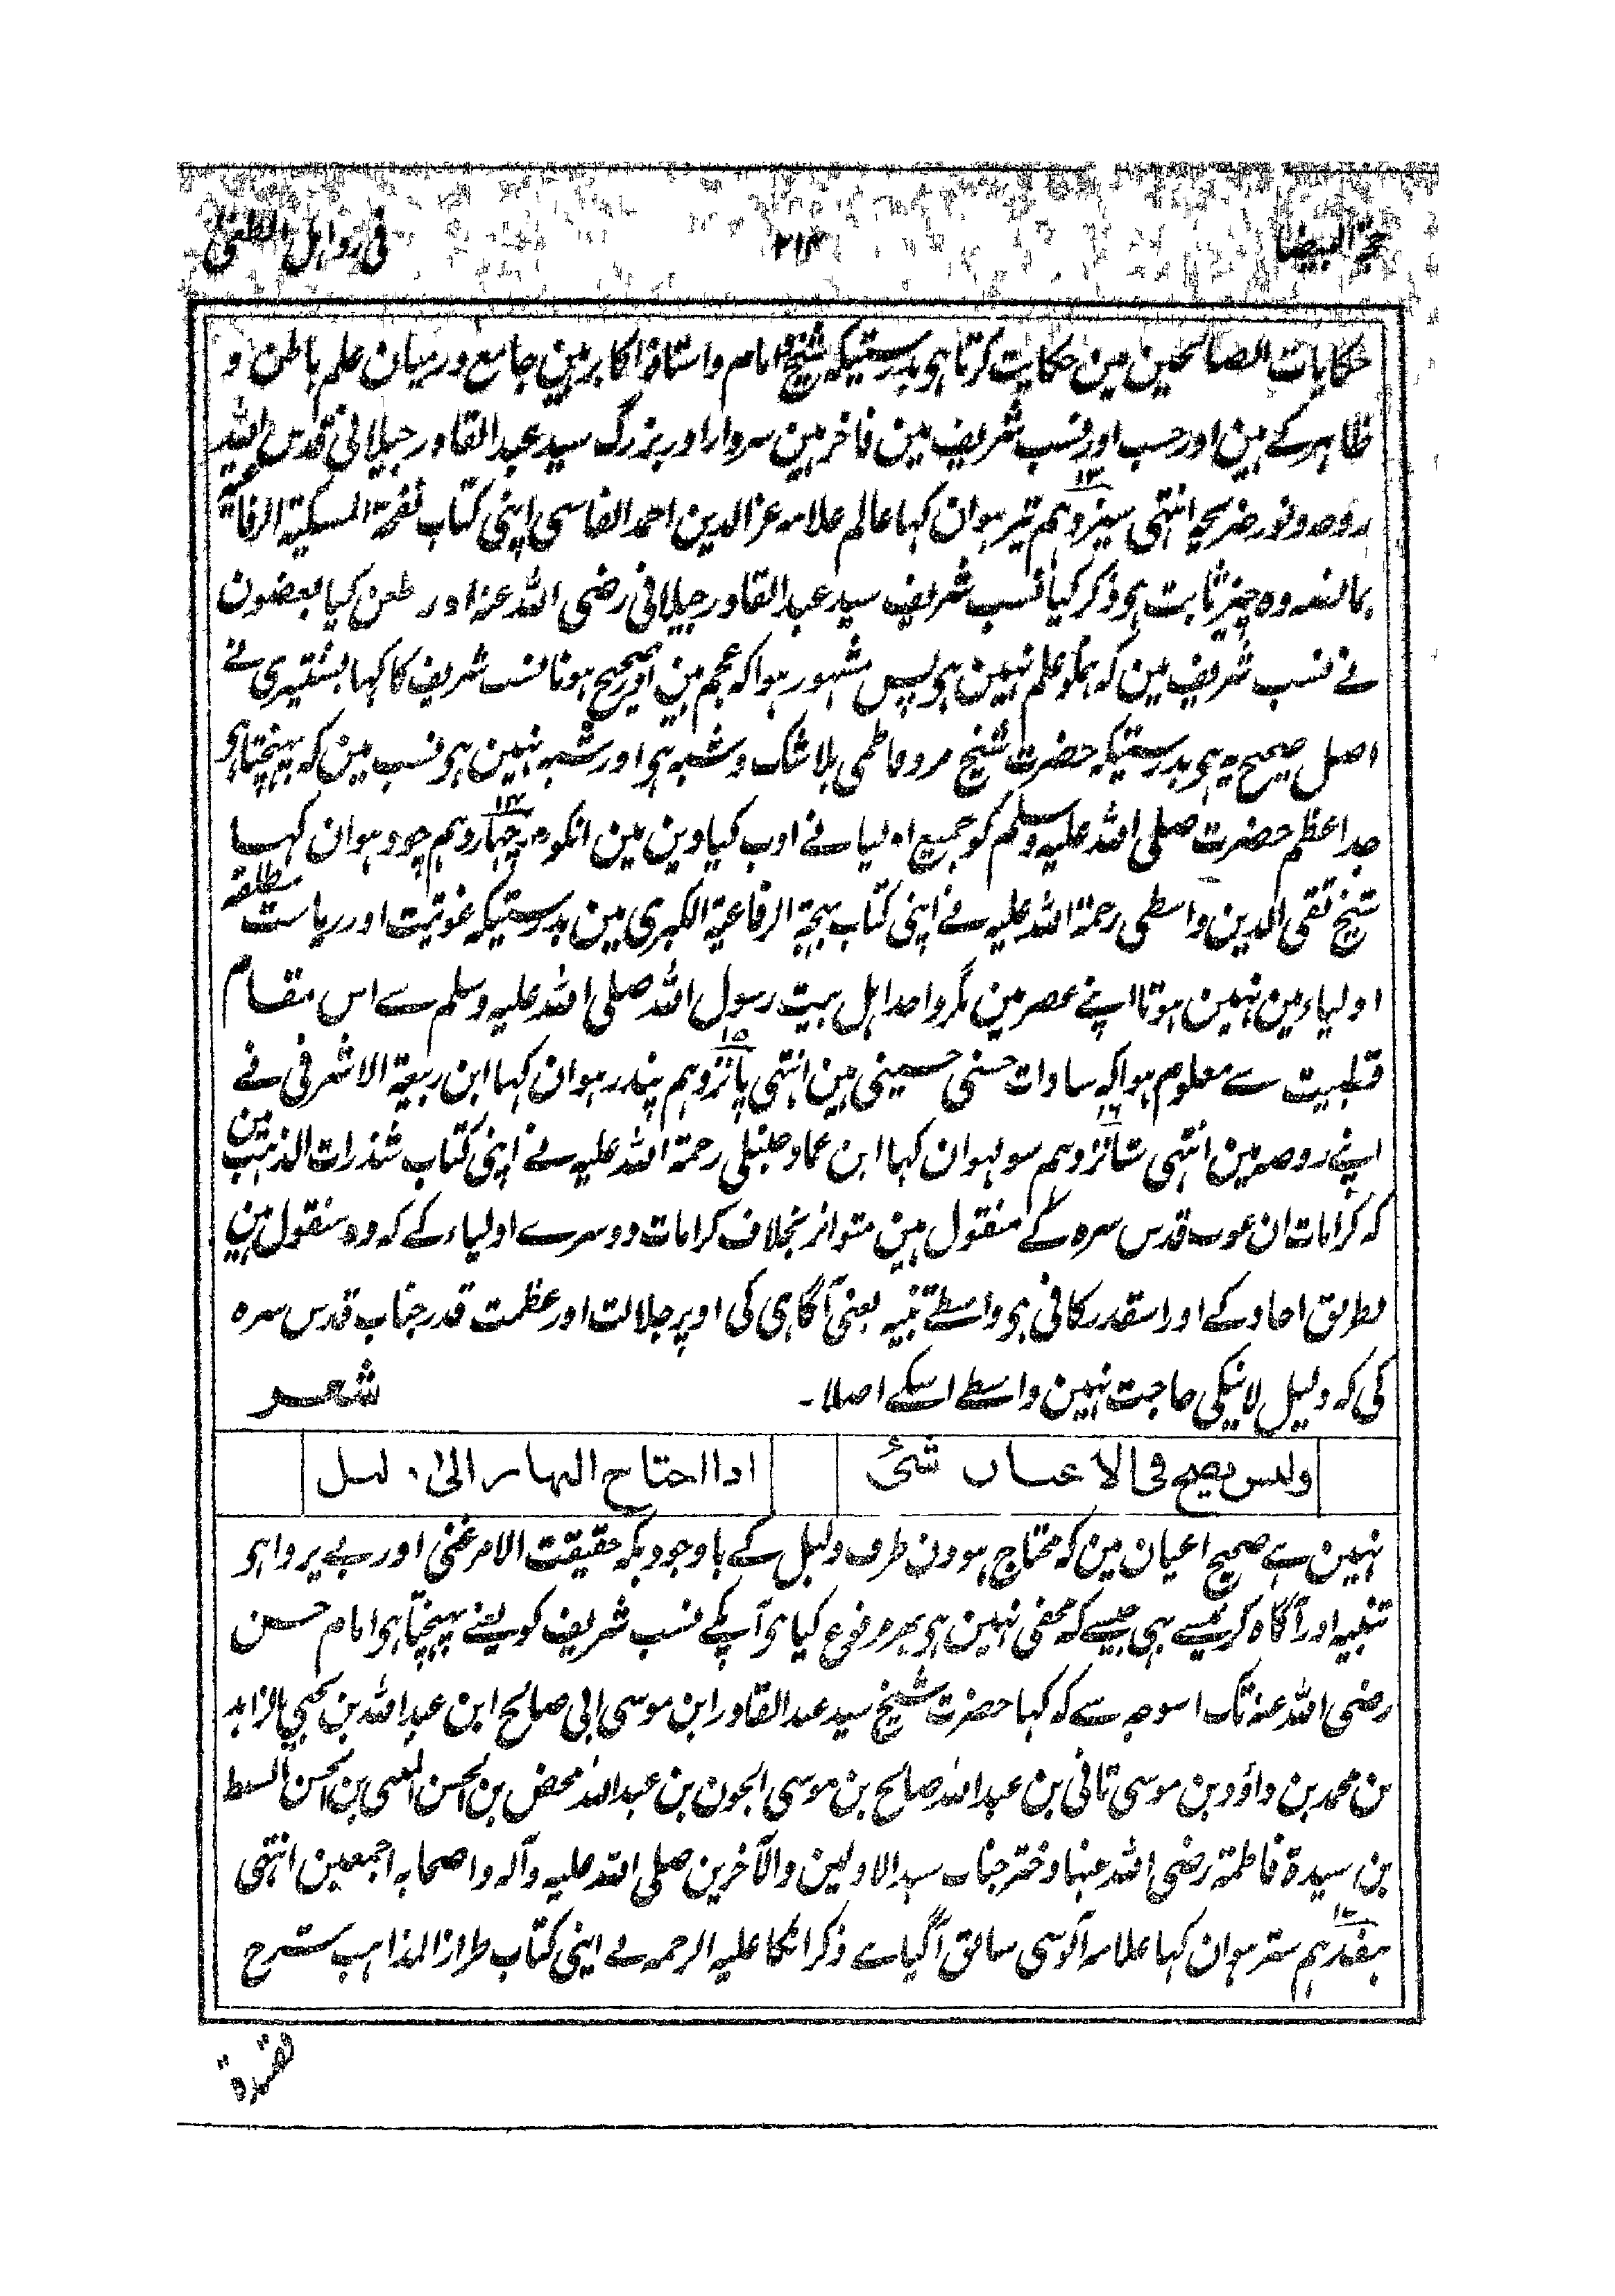 حجة البیضا ۲۱۴ فی رد اہل الطغی
حکایات الصالحین مین حکایت کرتا ہی بدرستیکہ شیخ امام و استاذ اکابر ہین جامع درمیان علم باطن و
ظاہر کے ہین اور حسب اور نسب شریف مین فاخر ہین سردار اور بزرگ سید عبد القادر جیلانی قدس اللہ
روحہ و نور ضریحہ انتہی سیزدہم ۱۳ تیرہوان کہا عالم علامہ عز الدین احمد الفاسی اپنی کتاب نفحة المسکیة الرفاعیة
بمانصہ وہ چیز ثابت ہی ذکر کیا نسب شریف سید عبد القادر جیلانی رضی اللہ عنہ اور طعن کیا بعضون
نے نسب شریف مین کہ ہمکو علم نہین ہی پس مشہور ہوا کہ عجم ہین اور صحیح ہونا نسب شریف کا کہا بشتیری نے
اصل صحیح یہ ہی بدرستیکہ حضرت شیخ مرد فاطمی بلا شک و شبہ ہی اور شبہ نہین ہی نسب مین کہ پہنچتا ہی
جد اعظم حضرت صلی اللہ علیہ وسلم کو جمیع اولیا نے ادب کیا دین مین انکو چہاردہم ۱۴ چودہوان کہا
شیخ تقی الدین واسطی رحمة اللہ علیہ نے اپنی کتاب بہجة الرفاعیة الکبری مین بدرستیکہ غوثیت اور ریاست مطلقہ
اولیاء مین نہین ہوتا اپنے عصر مین مگر واحد اہل بیت رسول اللہ صلی اللہ علیہ وسلم سے اس مقام
قطبیت سے معلوم ہوا کہ سادات حسنی حسینی ہین انتہی پانزدہم ۱۵ پندرہوان کہا ابن ربیعة الاشرفی نے
اپنے روضہ مین انتہی شانزدہم ۱۶ سولہوان کہا ابن عماد حنبلی رحمة اللہ علیہ نے اپنی کتاب شذرات الذہب مین
کہ کرامات ان غوث قدس سرہ کے منقول ہین متواتر بخلاف کرامات دوسرے اولیاء کے کہ وہ منقول ہین
بطریق احاد کے اور اسقدر کافی ہی واسطے تنبیہ یعنی آگاہی کی اوپر جلالت اور عظمت قدر جناب قدس سرہ
کی کہ دلیل لانیکی حاجت نہین واسطے اسکے اصلا۔ شعر
ولیس یصح فی الاعیان شئ اذا احتاج النهار الی دلیل
نہین ہے صحیح اعیان مین کہ محتاج ہو دن طرف دلیل کے باوجودیکہ حقیقت الامر غنی اور بے پروا ہی
تنبیہ اور آگاہ کرنیسے ہی جیسے کہ مخفی نہین ہی مرفوع کیا ہی آپکے نسب شریف کو یعنے پہنچتا ہی امام حسن
رضی اللہ عنہ تک اسوجہ سے کہ کہا حضرت شیخ سید عبد القادر ابن موسی ابی صالح ابن عبد اللہ بن یحیی الزاہد
بن محمد بن داؤد بن موسی ثانی بن عبد اللہ صالح بن موسی الجون بن عبد اللہ محض بن الحسن المثنی بن الحسن السبط
بن سیدة فاطمة رضی اللہ عنہا دختر جناب سید الاولین والآخرین صلی اللہ علیہ وآلہ واصحابہ اجمعین انتہی
ہفدہم ۱۷ سترہوان کہا علامہ آلوسی سابق آگیا ہے ذکر انکا علیہ الرحمہ نے اپنی کتاب طراز المذاہب شرح